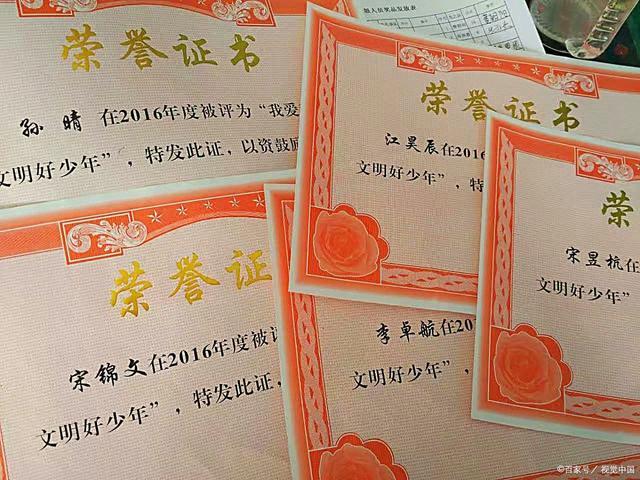 荣誉证书
孙晴 在2016年度被评为“我爱
文明好少年”，特发此证，以资鼓励
荣誉证书
江昊辰在2016
文明好少年”，特
荣
宋昱杭在
文明好少年”
荣誉证
宋锦文在2016年度被评
文明好少年”，特发此证，
李卓航在20
文明好少年”，
©百家号/视觉中国